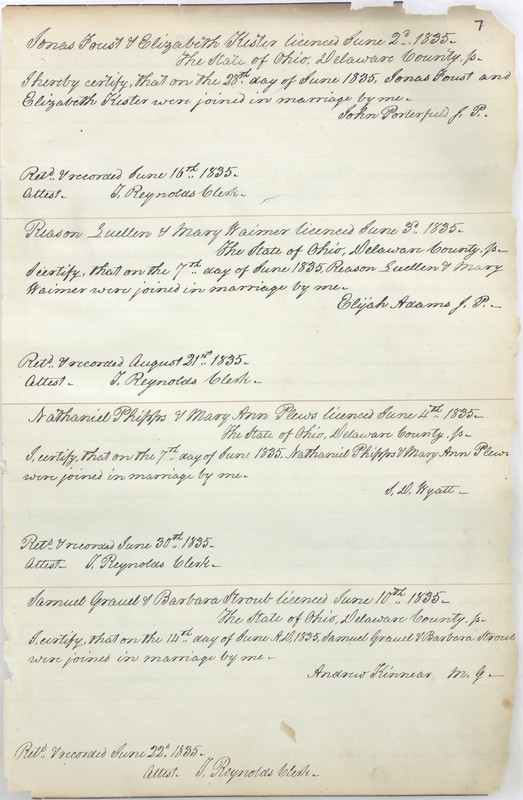 7
Jonas Foust & Elizabeth Kister licenced June 2d. 1835.
The State of Ohio, Delaware County, ss.
I hereby certify, that on the 28th day of June 1835, Jonas Foust and
Elizabeth Kister were joined in marriage by me.
John Porterfield J. P.
Retd. & recorded June 16th 1835.
Attest. T. Reynolds Clerk.
Reason Luellen & Mary Waimer licenced June 3d. 1835.
The State of Ohio, Delaware County, ss.
I certify, that on the 7th day of June 1835, Reason Luellen & Mary
Waimer were joined in marriage by me.
Elijah Adams J. P.
Retd. & recorded August 21st 1835.
Attest. T. Reynolds Clerk.
Nathaniel Phipps & Mary Ann Plews licenced June 4th 1835.
The State of Ohio, Delaware County, ss.
I, certify, that on the 7th day of June 1835, Nathaniel Phipps & Mary Ann Plews
were joined in marriage by me.
S. D. Wyatt.
Retd. & recorded June 30th 1835.
Attest. T. Reynolds Clerk.
Samuel Grauel & Barbara Stroub licenced June 10th 1835.
The State of Ohio, Delaware County, ss.
I, certify, that on the 14th day of June A.D. 1835, Samuel Grauel & Barbara Stroub
were joined in marriage by me.
Andrew Kinnear M. G.
Retd. & recorded June 22d. 1835.
Attest. T. Reynolds Clerk.